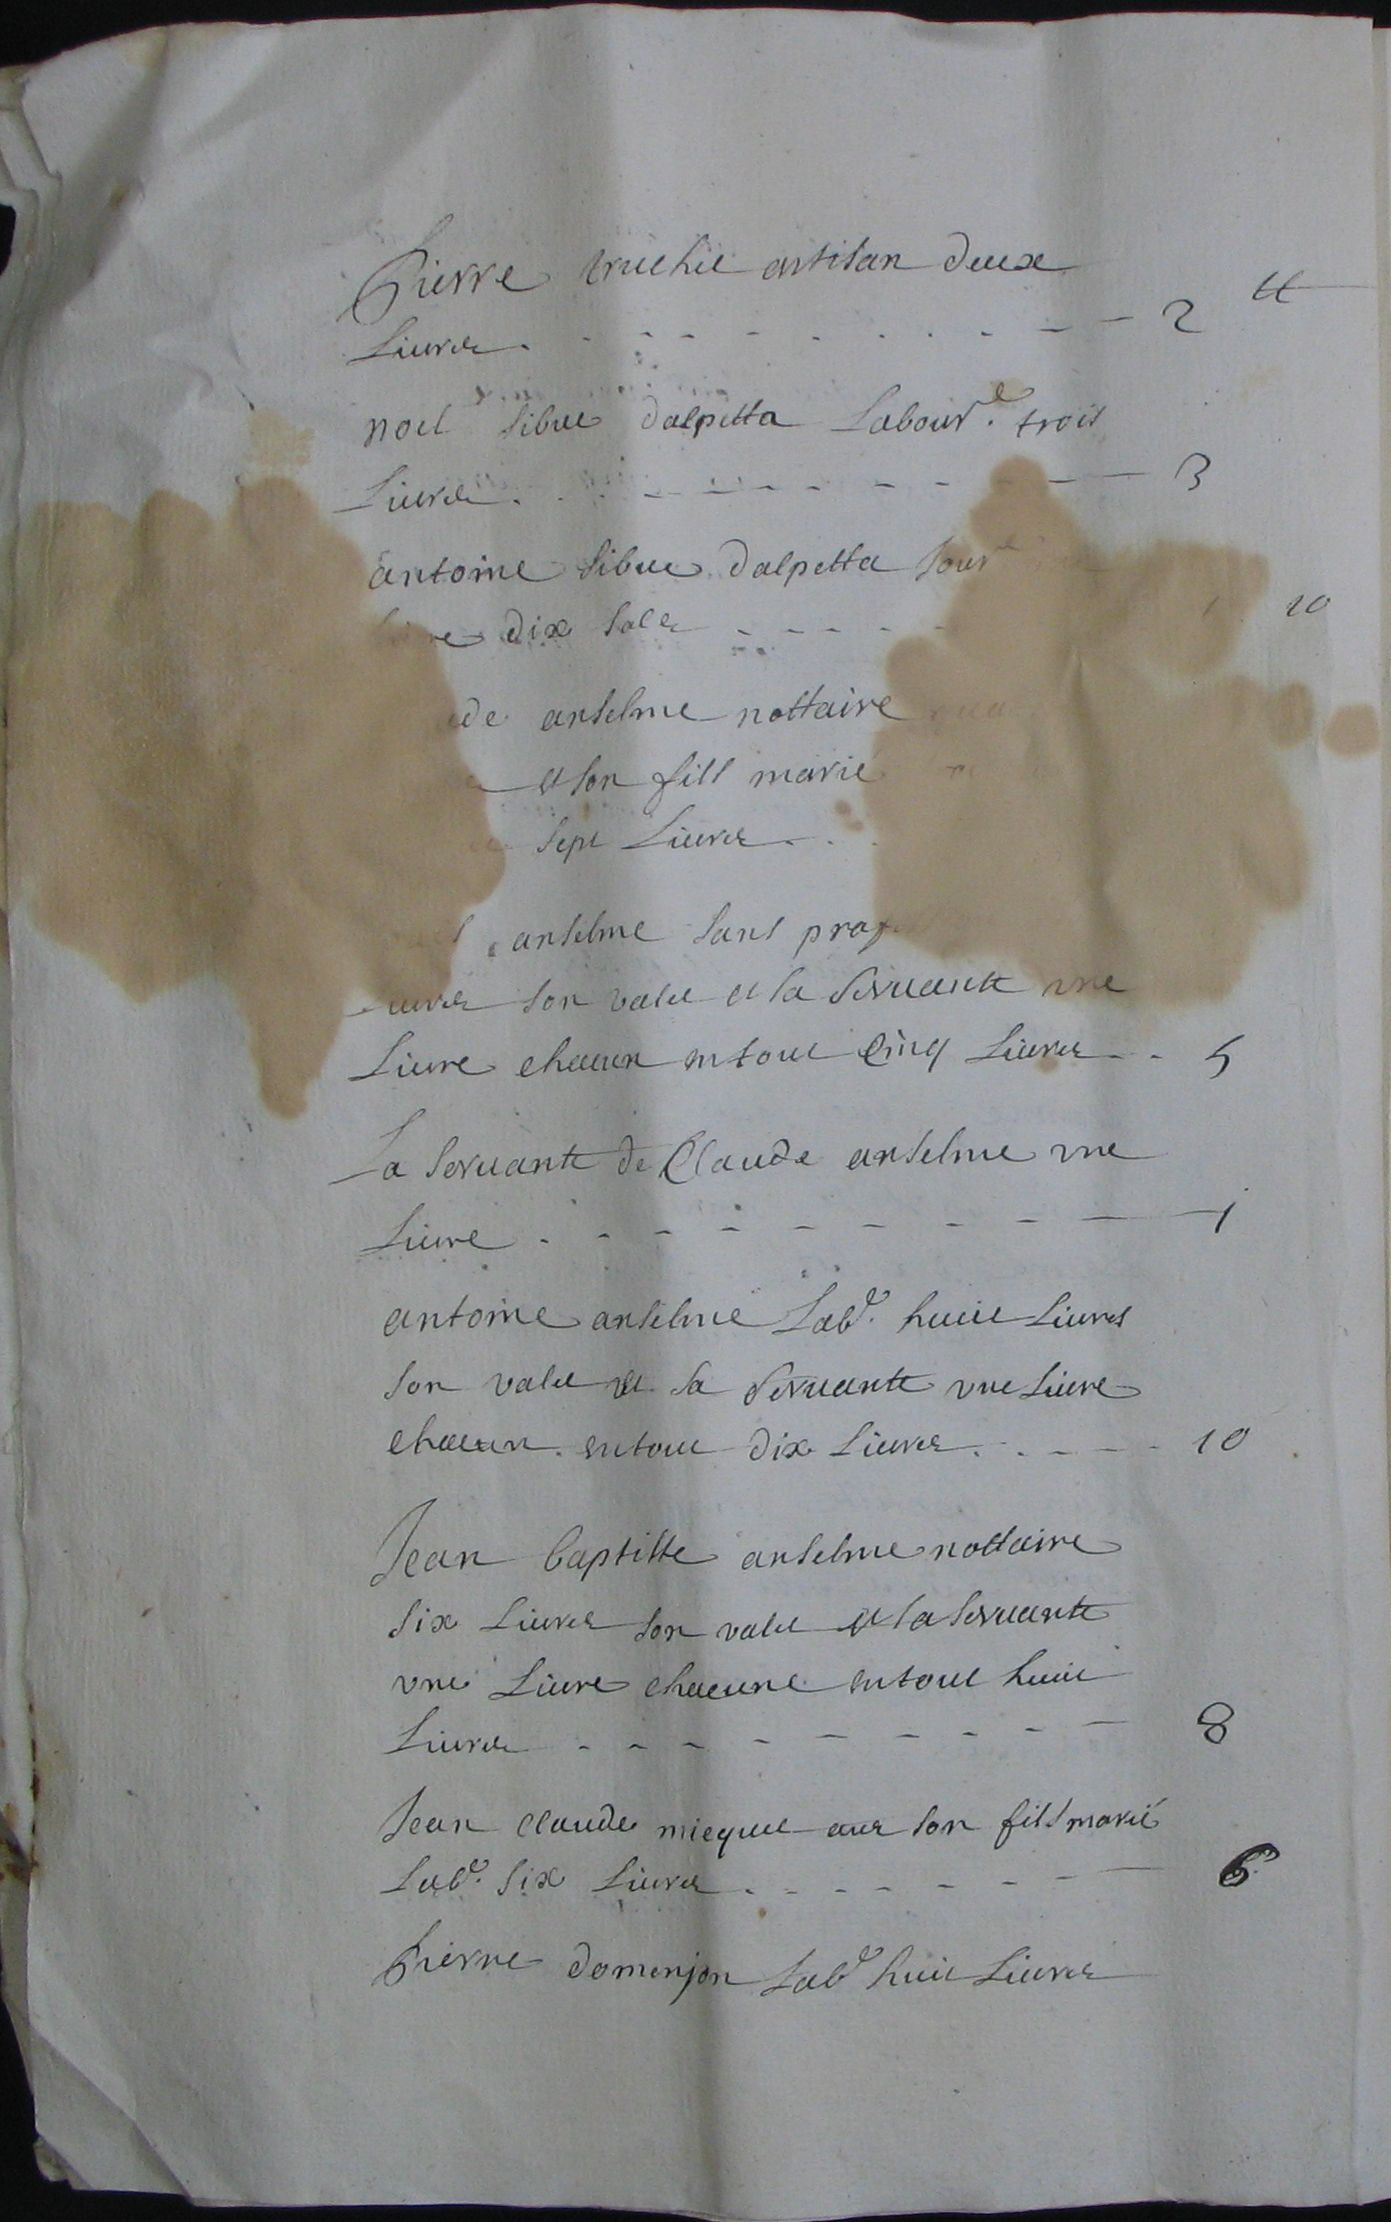 Pierre truchie artisan deux
Livres - - - - 2 ₶
noel sibue dalpetta Labour.e trois
Livres - - - - 3
antoine sibue dalpetta Jour
dix sols - - - - 1 10
anselme nottaire
et son fils marie
sept Livres - -
anselme sans prof
son valet et sa servante vne
Livre chacun entout Cinq Livres - - 5
La servante de Claude anselme vne
Livre - - - - 1
antoine anselme Lab.e huict Livres
son valet et sa servante vne Livre
chacun entout dix Livres - - - - 10
Jean baptiste anselme nottaire
six Livres son valet et sa servante
vne Livre chacune entout huict
Livres - - - - 8
Jean claude miequet auec son fils marié
Lab.e six Livres - - - - 6
Pierre domenjon Lab.e huict Livres